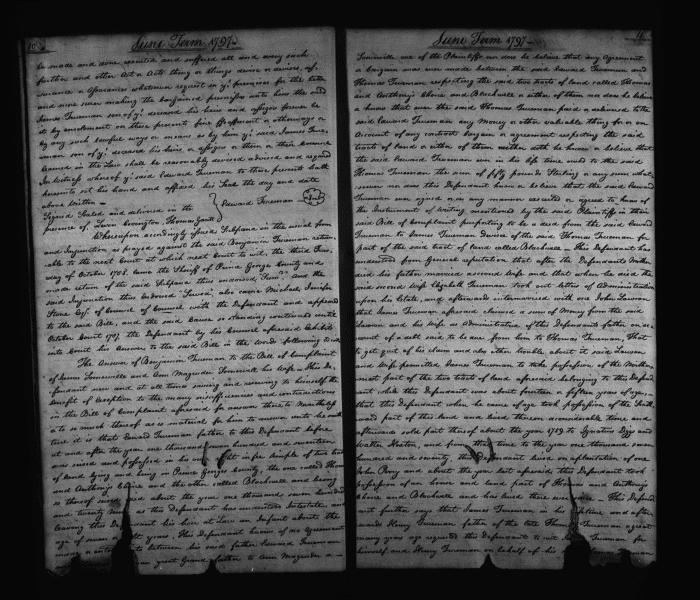 June Term 1797
be made and done executed and suffered all and every such
further and other Act or Acts thing or things device or devices, as
surance or Assurances whatsoever request on ye premises for the better
and more sure making the bargained premisses unto him the said
James Trueman son of ye deceased his heirs and assigns forever be
it by enrolment on these presents fine feoffment or otherways or
by any such lawfull ways or means as by him ye said James True
man son of ye deceased his heirs or assigns or them or their Councill
learned in the Law shall be reasonably devised advised and required
In witness whereof ye said Edward Trueman to these presents hath
hereunto set his hand and affixed his Seal the day and date
above written
Signed Sealed and delivered in the
presence of, Leven Covington, Thomas Gantt
Edward Trueman
Whereupon accordingly issued Subpena in the usual form
and Injunction as prayed against the said Benjamin Trueman return
able to the next Court at which next Court to wit, the third Tues
day of October came the Sheriff of Prince Georges County and
made return of the said Subpena thus endorsed and the
said Injunction thus Endorsed also came Michael Jenifer
Stone Esqr. of Councel with the Defendant and appeared
to the said Bill, and the said Cause so standing continued until
October Court 1797 the Defendant by his Councel aforesaid Exhibits
into Court his Answer to the said Bill in the words following to wit
The Answer of Benjamin Trueman to the Bill of Complaint
of James Somervell and Ann Magruder Somervell his wife. This De
fendant now and at all times saving and reserving to himself the
benefit of exception to the many insufficiencies and contradictions
in the Bill of Complaint aforesaid for answer thereto Nevertheless
or to so much thereof as is material for him to answer unto he saith
true it is that Edward Trueman father to this Defendant before
at and after the year one thousand seven hundred and seventeen
was seised and possessed in his in fee simple of two tracts
of land lying and being in Prince Georges County, the one called Thomas
and Anthonys Choice and the other called Blackwell and being
so thereof seised about the year one thousand seven hundred
and twenty as this Defendant has understood Intestate and
leaving this Defendant his heir at Law an Infant about the
age of seven or eight years. This Defendant knows of no Agreement
between his said father Edward Trueman
great Grand father to Ann Magruder
June Term 1797
Somervell one of the Plaintiffs nor does he believe that any Agreement
or bargain was ever made between the said Edward Trueman and
Thomas Trueman respecting the said two tracts of land called Thomas
and Anthonys Choice and Blackwell or either of them nor does he believe
or know that ever the said Thomas Trueman paid or delivered to the
said Edward Trueman any Money or other valuable thing for or on
Account of any contract bargain or agreement respecting the said
tracts of land or either of them neither doth he know or believe that
the said Edward Trueman ever in his life time owed to the said
Thomas Trueman the sum of fifty pounds Sterling or any sum what
soever nor does this Defendant know or believe that the said Edward
Trueman ever signed or in any manner executed or agreed to knew of
the Instrument of writing mentioned by the said Plaintiffs in their
said Bill of Complaint purporting to be a deed from the said Edward
Trueman to James Trueman son of the said Thomas Trueman for
part of the said tract of land called Blackwell. This Defendant has
understood from General reputation that after the Defendants Mother
died his father married a second wife and that when he died the
said second wife Elizabeth Trueman took out letters of Administration
upon his Estate, and afterwards intermarried with one John Lawson
that James Trueman aforesaid claimed a sum of Money from the said
Lawson and his wife as Administratrix of this Defendants father on ac
count of a debt said to be due from him to Thomas Trueman. That
to get quit of his claim and also other trouble about it said Lawson
and wife permitted James Trueman to take possession of the Northern
most part of the two tracts of land aforesaid belonging to this Defend
ant while this Defendant was about fourteen or fifteen years of age,
that this Defendant when he came of age took possession of the South
ward part of this land and lived thereon considerable time and
afterwards sold part thereof about the year 1759 to Ignatius Digges and
Walter Hoxton, and from that time to the year one thousand seven
hundred and seventy, this Defendant lived on a plantation of one
John Perry and about the year last aforesaid this Defendant took
possession of an house and land part of Thomas and Anthonys
Choice and Blackwell and has lived there ever since. This Defend
ant further says that James Trueman in his life time and after
wards Henry Trueman father of the late Thomas Trueman a great
many years ago requested this Defendant to wit James Trueman for
himself and Henry Trueman on behalf of his